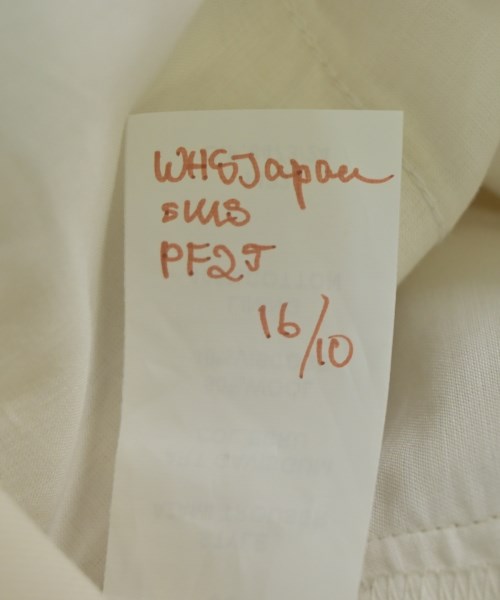 WHS Japan
SMS
PF25
16/10